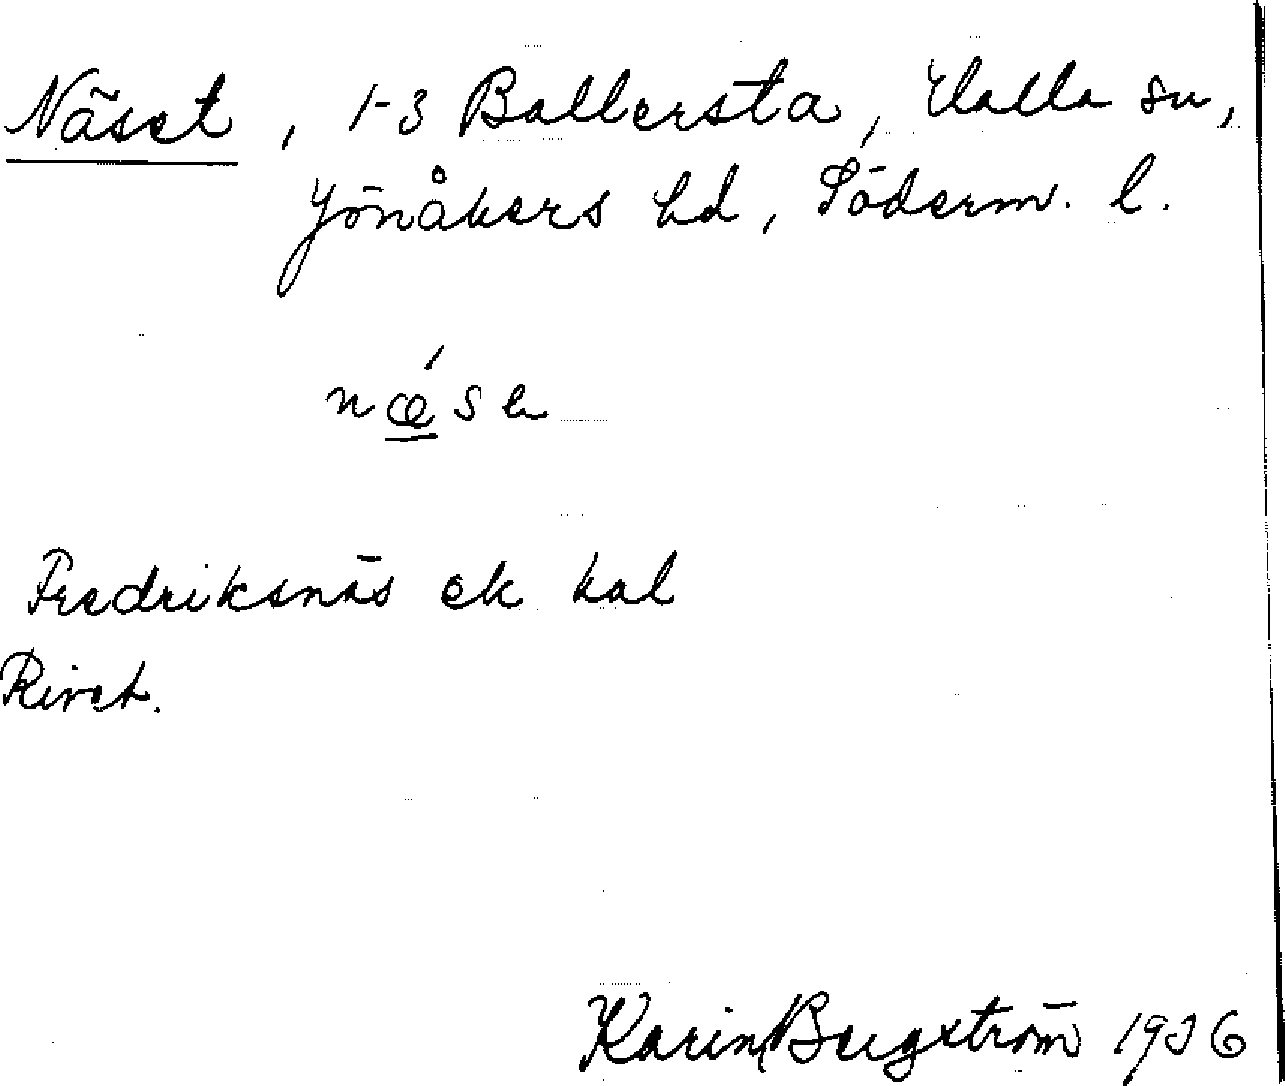 Näset, 1-3 Ballersta, Halla sn,
Jönåkers hd, Söderm. l.
næ´se
Fredriksnäs ek kal
Rivet.
Karin Bergström 1936